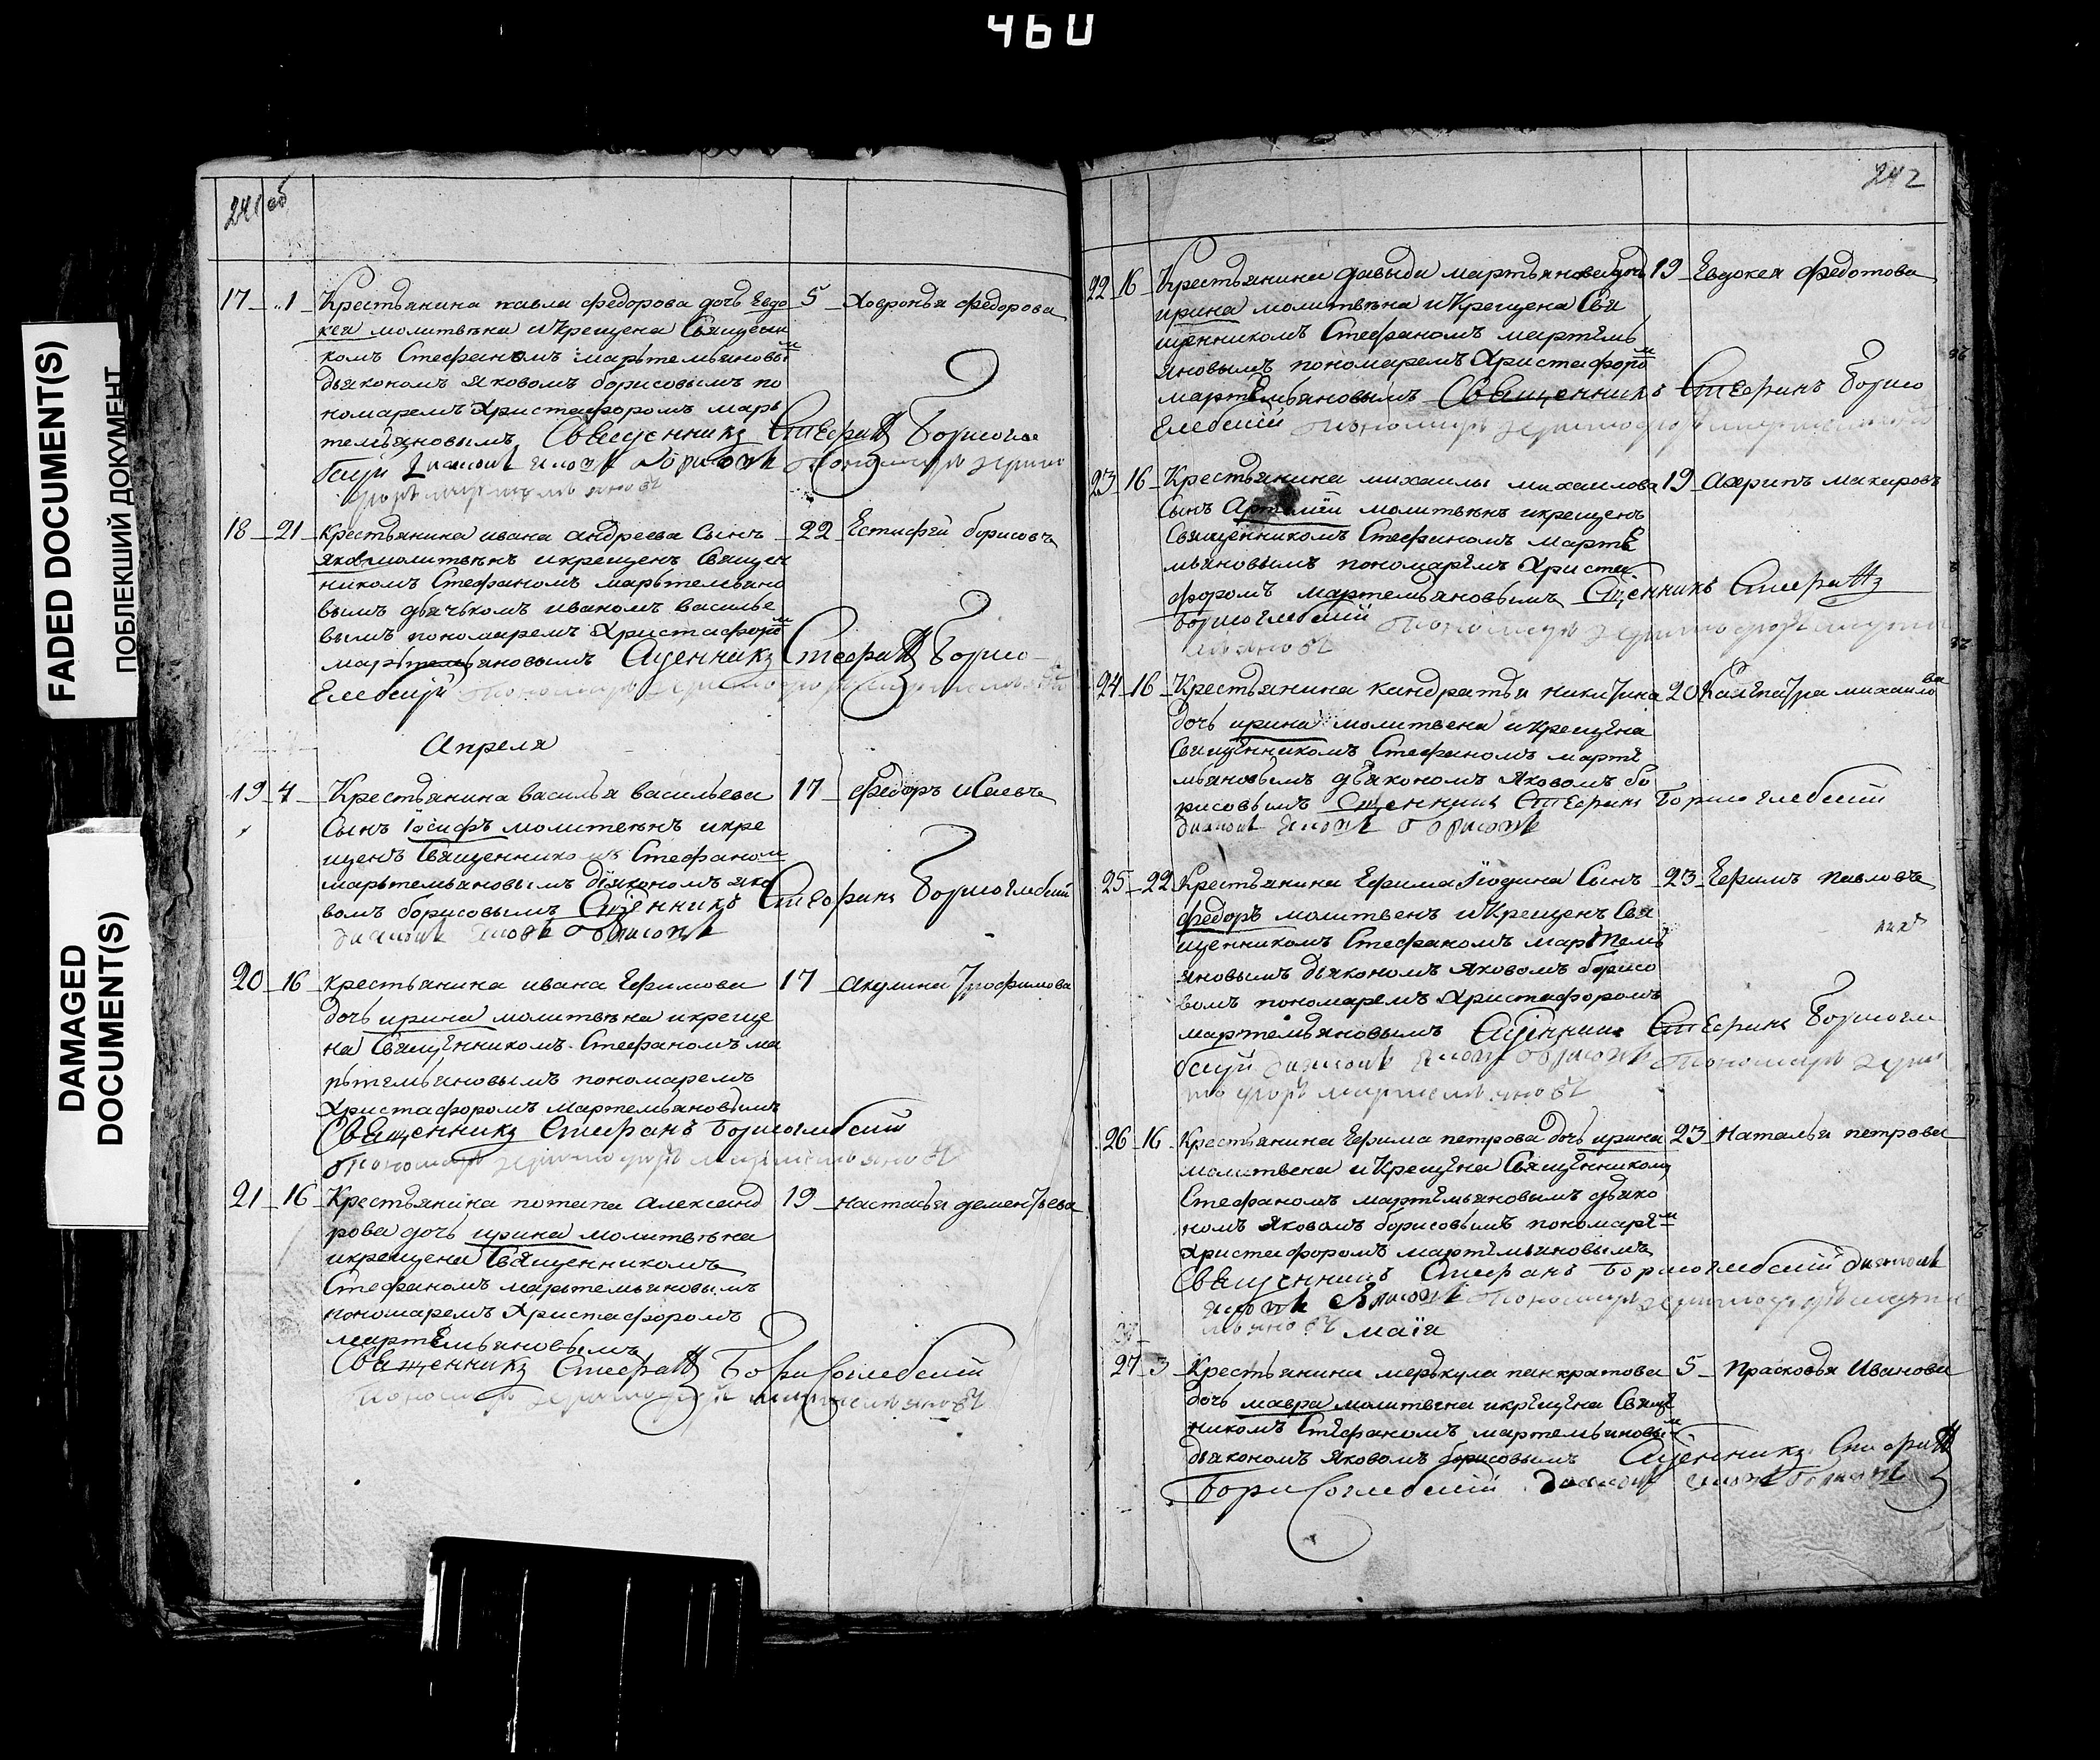 460
FADED DOCUMENT(S)
ПОБЛЕКШИЙ ДОКУМЕНТ
DAMAGED
DOCUMENT(S)
241 об
17 1 Крестьянина павла федорова дочь Евдо 5 Ховронья федорова
кея молитвѣна и крещена Священи
комъ Стефаномъ мартемьяновы м
дьякономъ яковомъ борисовымъ по
номаремъ Христафоромъ марь
темьяновымъ Священникъ Стефанъ Борисогле
бскій диаконъ яковъ борисовъ Пономарь Христо
форъ мартемьяновъ
18 21 крестьянина ивана андреева Сынъ 22 Естифей борисовъ
яковъ молитвѣнъ и крещенъ Священ
никомъ Стефаномъ марьтемьяно
вымъ дьячькомъ иваномъ василье
вымъ пономаремъ Христафоро м
марьтемьяновымъ Сщенникъ Стефанъ Борисо
глебскій Пономарь Христофоръ мартемьяновъ
Апреля
19 4 Крестьянина василья васильева 17 федоръ исаевъ
Сынъ Іосифъ молитвѣнъ и кре
щенъ Священникомъ Стефаном
марьтемьяновымъ діякономъ яко
вомъ борисовымъ Сщенникъ Стефанъ Борисоглебскій
диаконъ яковъ борисовъ
20 16 крестьянина ивана Ефимова 17 акулина трофимова
дочь ирина молитвѣна и креще
на Священникомъ Стефаномъ ма
рьтемьяновымъ пономаремъ
Христафоромъ мартемьяновымъ
Священникъ Стефанъ Борисоглебскій
Пономарь Христофоръ мартемьяновъ
21 16 Крестьянина потапа александ 19 настасья дементьева
рова дочь ирина молитвѣна
и крещена Священникомъ
Стефаномъ марьтемьяновымъ
пономаремъ Христафоромъ
мартемьяновымъ
Священникъ Стефанъ БориСоглебскій
Пономарь Христофоръ мартемьяновъ
242
22 16 Крестьянина давыда мартьянова дочь 19 Евдокея федотова
ирина молитвѣна и крещена Свя
щенникомъ Стефаномъ мартемь
яновымъ пономаремъ Христафоро м
мартемьяновымъ Священникъ Стефанъ Борисо
глебскій Пономарь Христофоръ мартемьяновъ
23 16 Крестьянина михаилы михаилова 19 архипъ макаровъ
Сынъ Артемій молитвѣнъ и крещенъ
Священникомъ Стефаномъ марте
мьяновымъ пономаремъ Христа
форомъ мартемьяновымъ Сщенникъ Стефанъ
Борисоглебскій Пономарь Христофоръ марте
мьяновъ
24 16 Крестьянина кандратья никитина 20 Калепатра михаило ва
дочь ирина молитвена и крещена
Священникомъ Стефаномъ марте
мьяновымъ дьякономъ яковомъ бо
рисовымъ Сщенникъ Стефанъ Борисоглебскій
диаконъ яковъ борисовъ
25 22 Крестьянина Ефима Іюдина Сынъ 23 Ефимъ павловъ
федоръ молитвенъ и крещенъ Свя
щенникомъ Стефаномъ мартемь
яновымъ дьякономъ яковомъ борисо
вомъ пономаремъ Христафоромъ
мартемьяновымъ Сщенникъ Стефанъ Борисогле
бскій диаконъ яковъ борисовъ Пономарь Хри
стофоръ мартемьяновъ
26 16 Крестьянина Ефима петрова дочь ирина 23 Наталья петрова
молитвена и крещена Священникомъ
Стефаномъ мартемьяновымъ дьяко
номъ яковомъ борисовымъ пономаре м
Христафоромъ мартемьяновымъ
Священникъ Стефанъ Борисоглебскій диаконъ
яковъ борисовъ Пономарь Христофоръ марте
мьяновъ маія
27 3 Крестьянина меркула панкратова 5 прасковья Иванова
дочь мавра молитвена и крещена Свящ
никомъ Стефаномъ мартемьяновы м
дьякономъ яковомъ борисовымъ Сщенникъ Стефанъ
БориСоглебскій диаконъ яковъ борисовъ